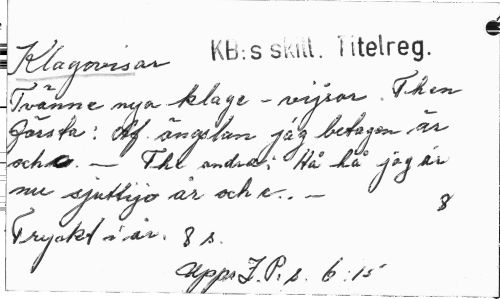 KB:s skill. Titelreg.
Klagovisar
Tvänne nya klage-vijsor. Then
första: Af ängslan jag betagen är
och c. — The andra: Hå hå jag är
nu sjuttijo år och c.. —
8
Tryckt i år. 8 s.
Upps. F. P: s. 6:15